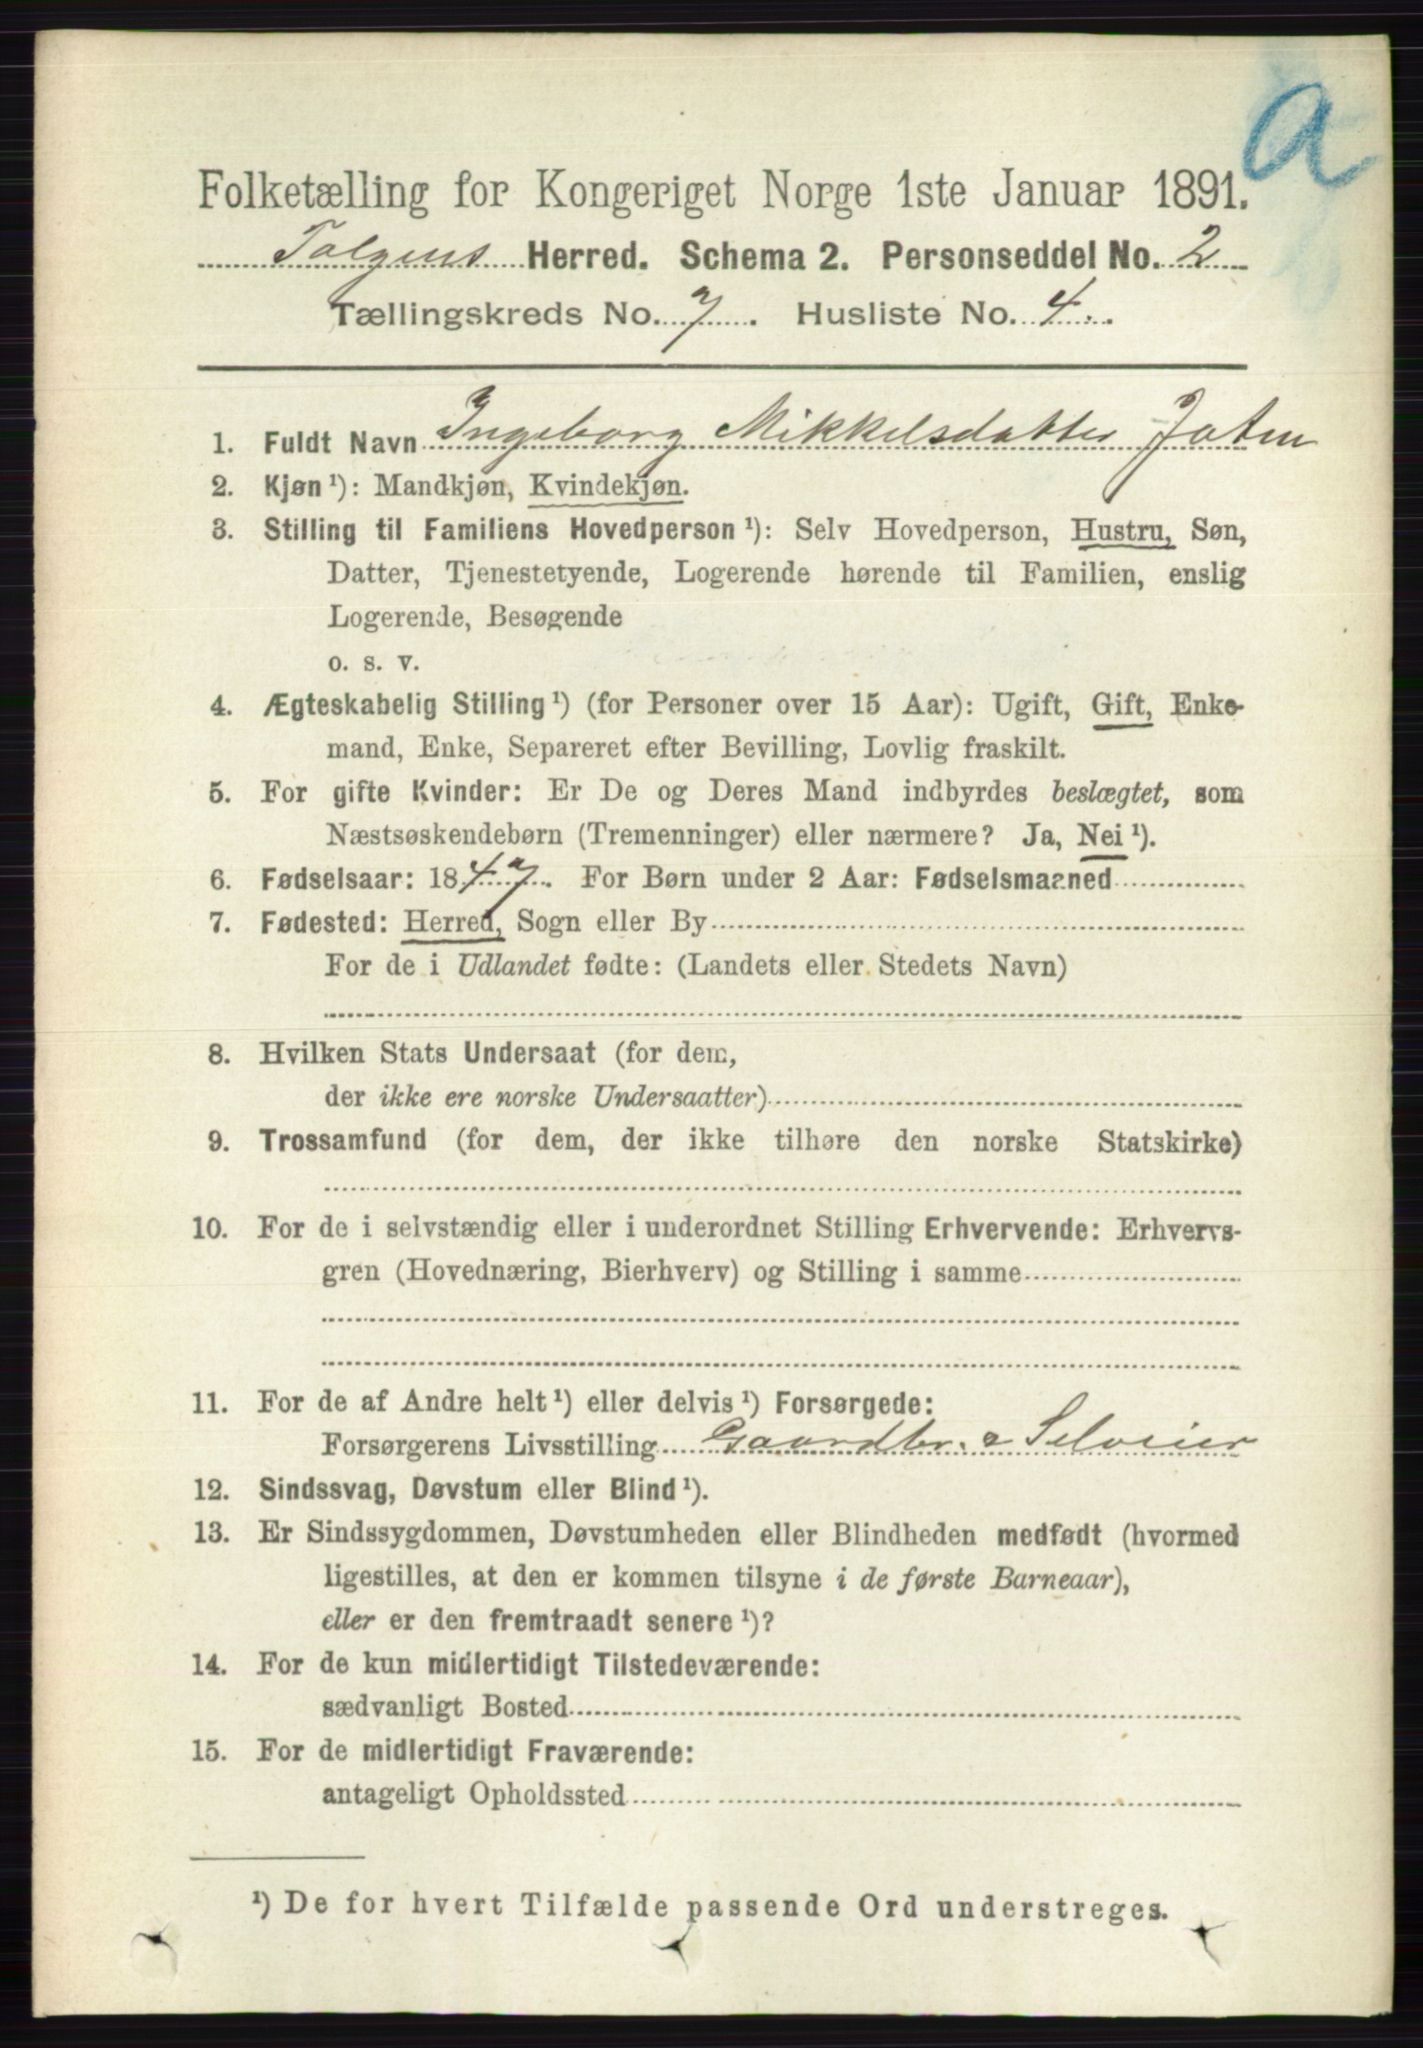 a
Folketælling for Kongeriget Norge 1ste Januar 1891.
Tolgens Herred. Schema 2. Personseddel No. 2
Tællingskreds No. 7. Husliste No. 4.
1. Fuldt Navn Ingeborg Mikkelsdatter Joten
2. Kjøn¹): Mandkjøn, Kvindekjøn.
3. Stilling til Familiens Hovedperson¹): Selv Hovedperson, Hustru, Søn,
Datter, Tjenestetyende, Logerende hørende til Familien, enslig
Logerende, Besøgende
o. s. v.
4. Ægteskabelig Stilling¹) (for Personer over 15 Aar): Ugift, Gift, Enke-
mand, Enke, Separeret efter Bevilling, Lovlig fraskilt.
5. For gifte Kvinder: Er De og Deres Mand indbyrdes beslægtet, som
Næstsøskendebørn (Tremenninger) eller nærmere? Ja, Nei¹).
6. Fødselsaar: 1847. For Børn under 2 Aar: Fødselsmaaned
7. Fødested: Herred, Sogn eller By
For de i Udlandet fødte: (Landets eller Stedets Navn)
8. Hvilken Stats Undersaat (for dem,
der ikke ere norske Undersaatter)
9. Trossamfund (for dem, der ikke tilhøre den norske Statskirke)
10. For de i selvstændig eller i underordnet Stilling Erhvervende: Erhvervs-
gren (Hovednæring, Bierhverv) og Stilling i samme
11. For de af Andre helt¹) eller delvis¹) Forsørgede:
Forsørgerens Livsstilling Gaardbr. & Selveier
12. Sindssvag, Døvstum eller Blind¹).
13. Er Sindssygdommen, Døvstumheden eller Blindheden medfødt (hvormed
ligestilles, at den er kommen tilsyne i de første Barneaar),
eller er den fremtraadt senere¹)?
14. For de kun midlertidigt Tilstedeværende:
sædvanligt Bosted
15. For de midlertidigt Fraværende:
antageligt Opholdssted
¹) De for hvert Tilfælde passende Ord understreges.